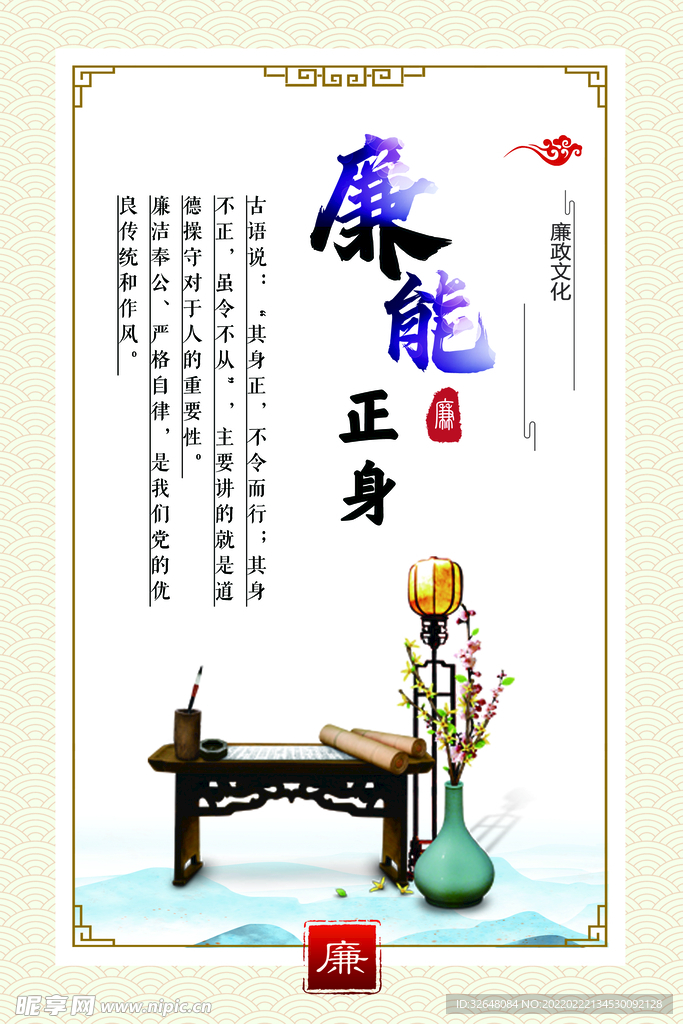 廉政文化
廉能
正身
廉
古语说：“其身正，不令而行；其身
不正，虽令不从”，主要讲的就是道
德操守对于人的重要性。
廉洁奉公、严格自律，是我们党的优
良传统和作风。
廉
昵享网 www.nipic.cn
ID:32648084 NO:20220222134530092128